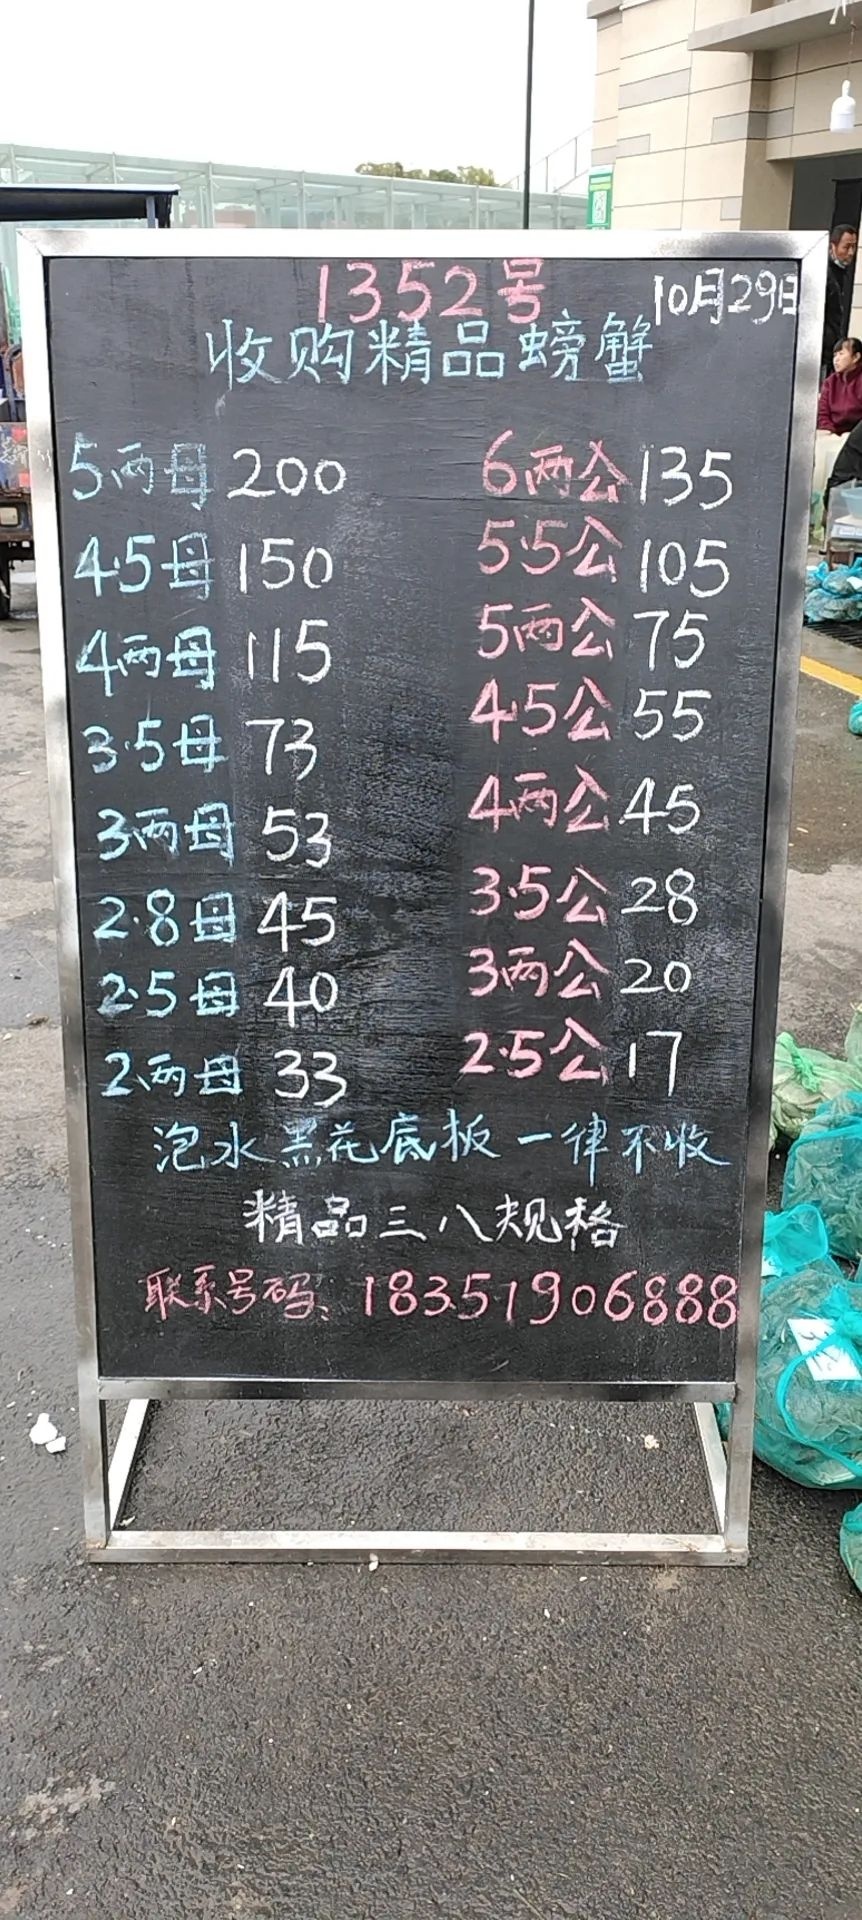 1352号
10月29日
收购精品螃蟹
5两母 200
4.5母 150
4两母 115
3.5母 73
3两母 53
2.8母 45
2.5母 40
2两母 33
6两公 135
5.5公 105
5两公 75
4.5公 55
4两公 45
3.5公 28
3两公 20
2.5公 17
泡水黑花底板一律不收
精品三八规格
联系号码：18351906888